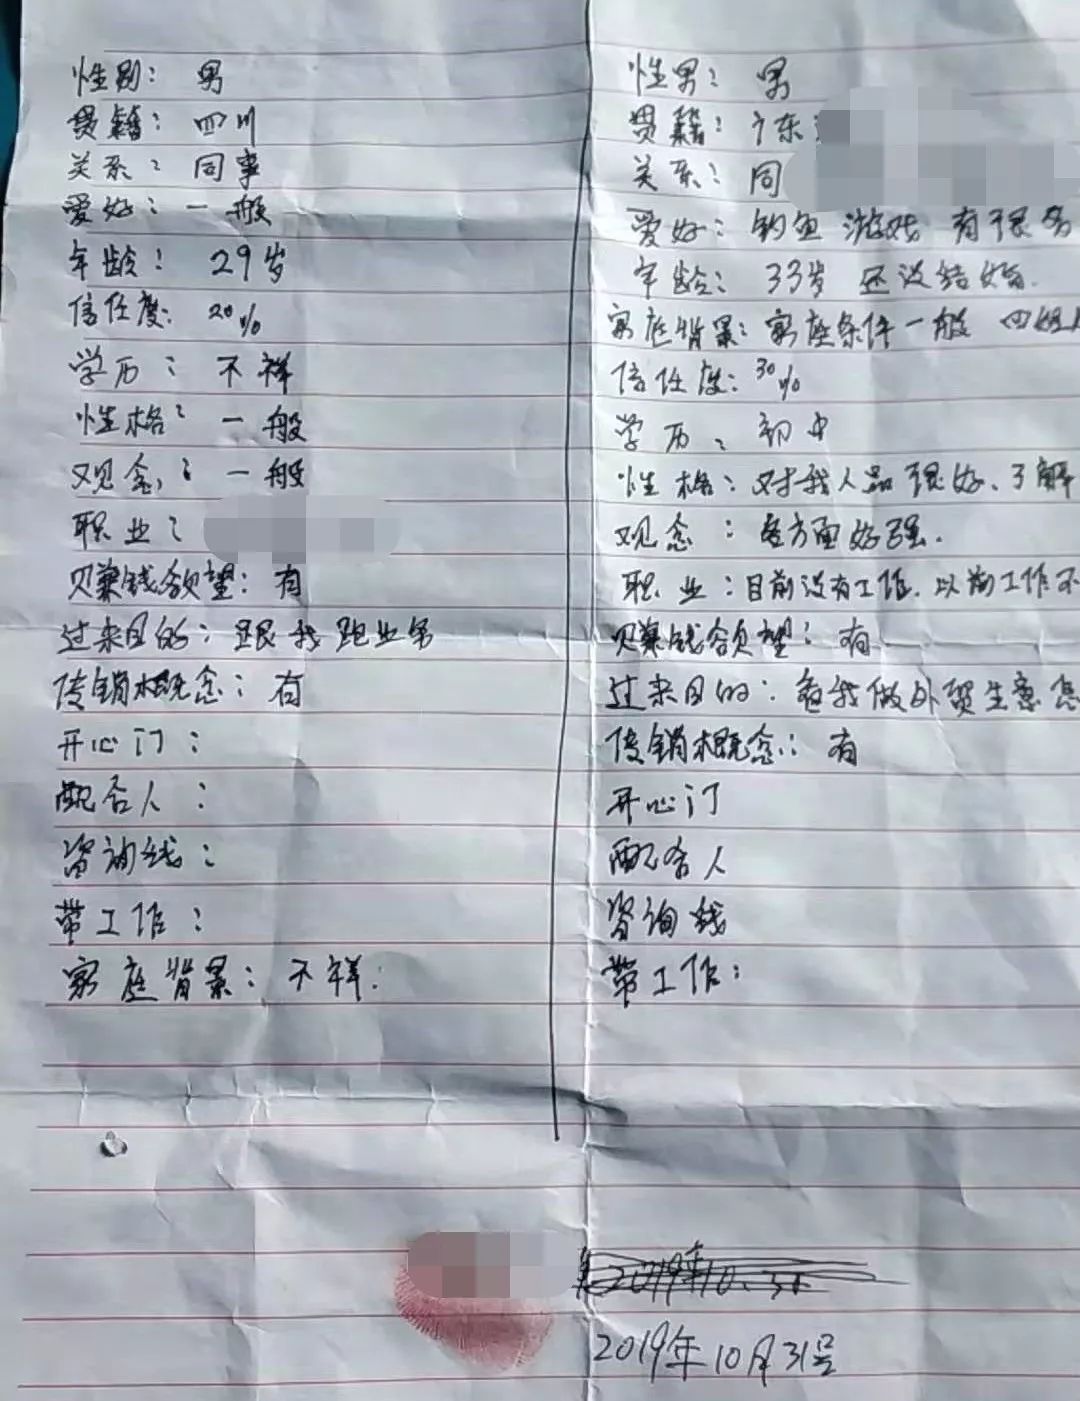 性别：男
贯籍：四川
关系：同事
爱好：一般
年龄：29岁
信任度：20%
学历：不祥
性格：一般
观念：一般
职业：
赚钱欲望：有
过来目的：跟我跑业务
传销概念：有
开心门：
配合人：
咨询线：
带工作：
家庭背景：不祥.
性男：男
贯籍：广东
关系：同
爱好：钓鱼 游戏 有很多
年龄：33岁 还没结婚.
家庭背景：家庭条件一般 四姐
信任度：30%
学历：初中
性格：对我人品很好、了解
观念：各方面好强.
职业：目前没有工作.以前工作不
赚钱欲望：有
过来目的：看我做外贸生意怎
传销概念：有
开心门
配合人
咨询线
带工作：
2019年10.31
2019年10月31号